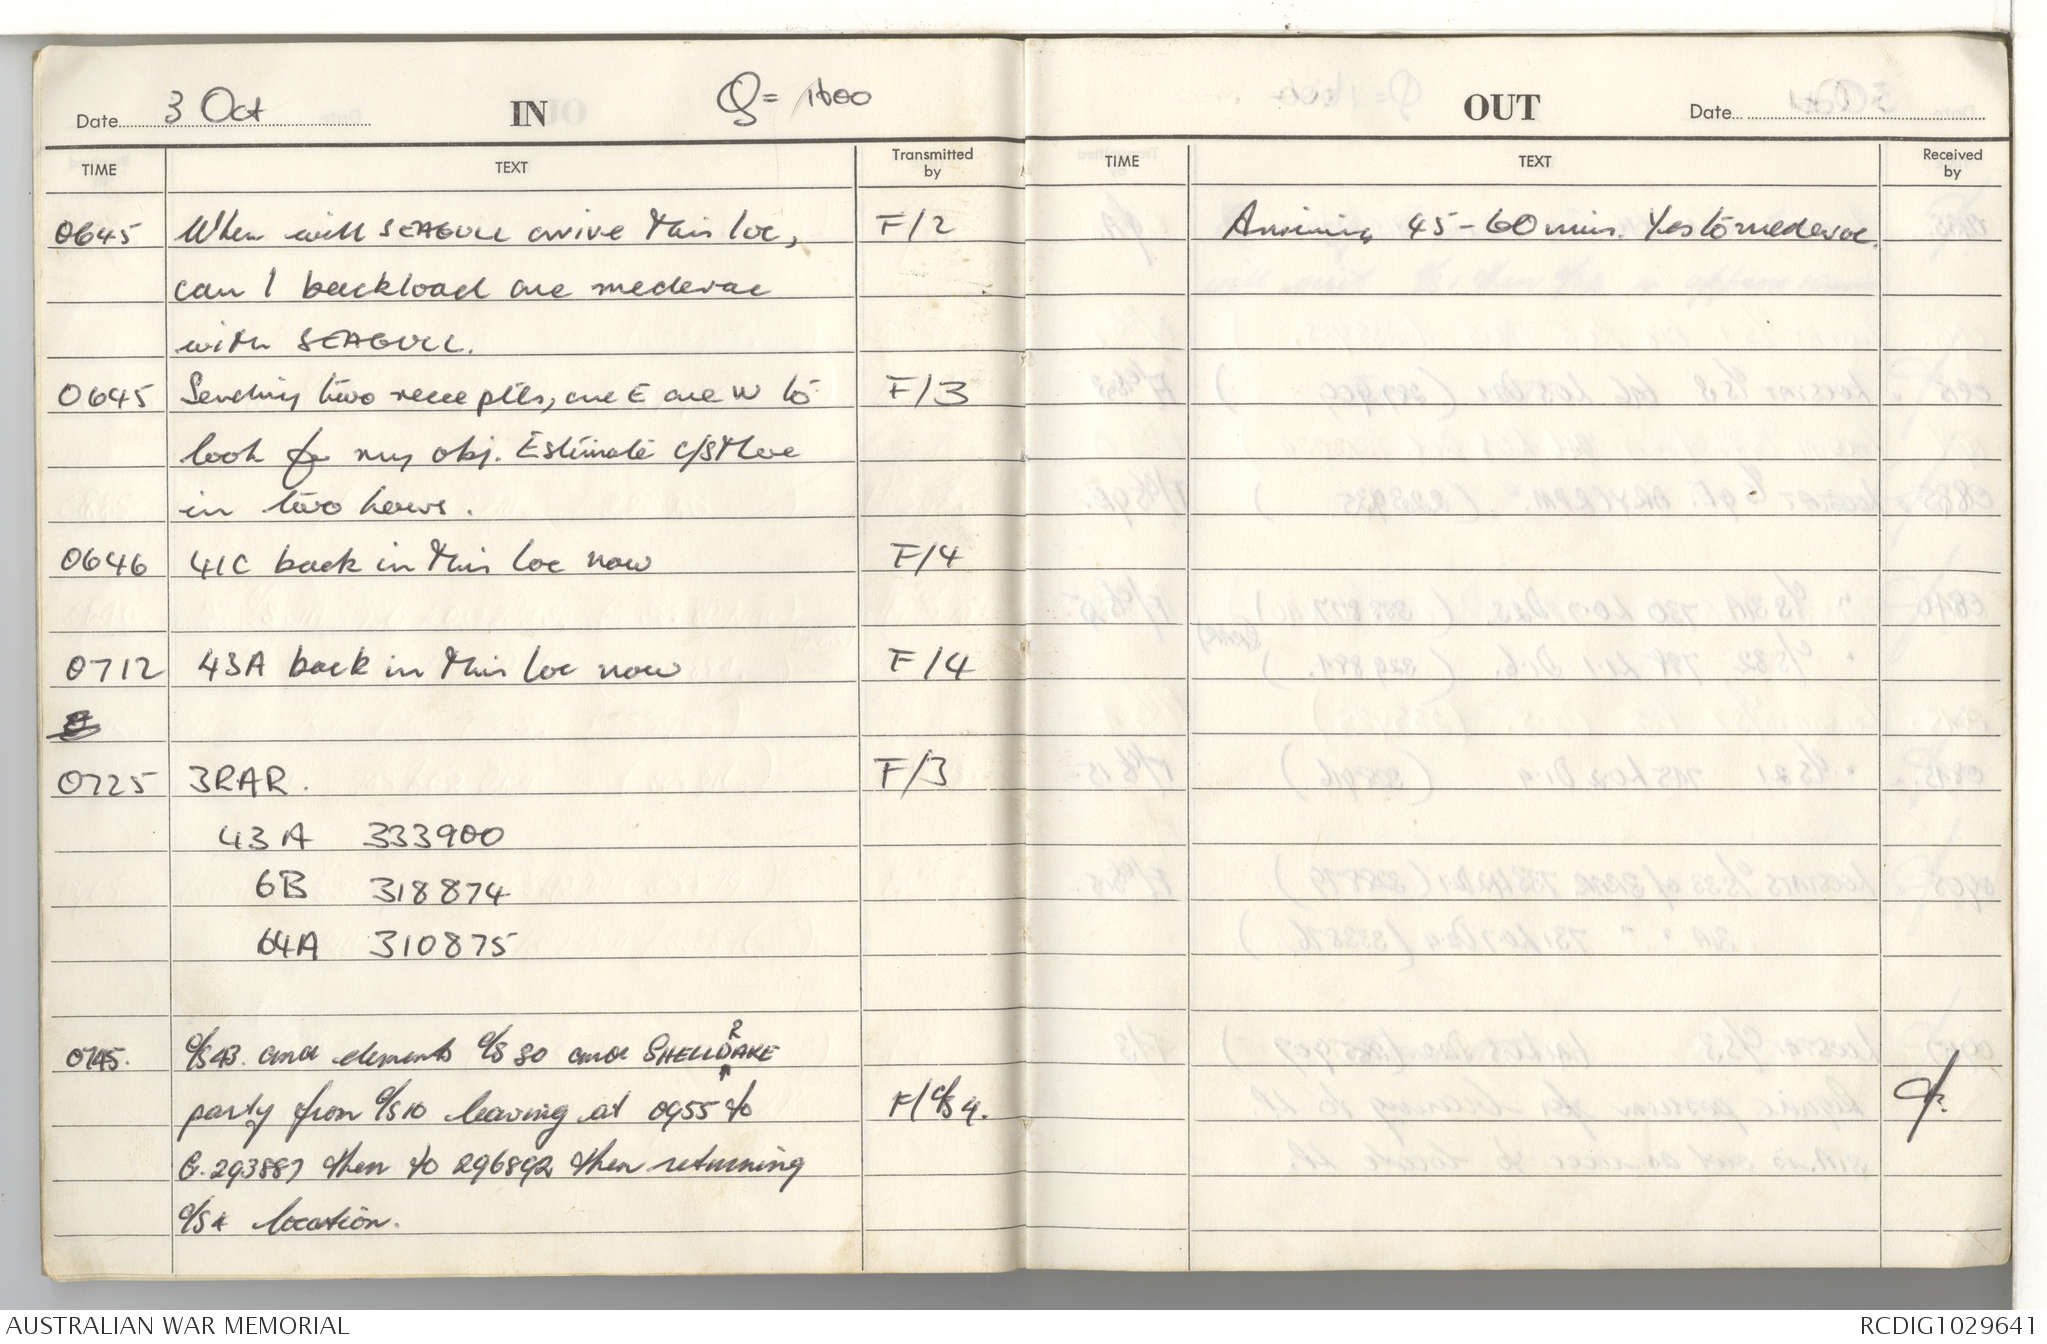 Date 3 Oct IN Q= 1600
TIME TEXT Transmitted by
0645 When will SEAGULL arrive this loc, F/2
can I backload one medevac
with SEAGULL.
0645 Sending two recce ptls, one E one W to F/3
look for my obj. Estimate c/s 4 loc
in two hours.
0646 41C back in this loc now F/4
0712 43A back in this loc now F/4
0725 3RAR. F/3
43A 333900
6B 318874
64A 310875
0745. c/s 43. and elements c/s 80 and SHELLDRAKE
party from c/s 10 leaving at 0955 to F/c/s 4.
G. 293887 then to 296892 then returning
c/s 4 location.
OUT Date
TIME TEXT Received by
Arriving 45-60 mins. Yes to medevac.
AUSTRALIAN WAR MEMORIAL RCDIG1029641